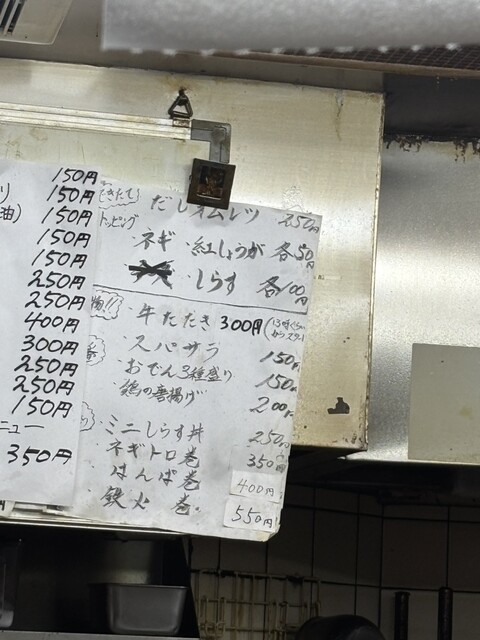 150円
150円
油) 150円
150円
150円
250円
250円
400円
300円
250円
250円
150円
ニュー
350円
できたて だしオムレツ 250円
トッピング
ネギ・紅しょうが 各50円
しらす 各100円
物!! 牛たたき 300円
スパサラ 150円
おでん3種盛り 150円
鶏の唐揚げ 200円
ミニしらす丼 250円
ネギトロ巻 350円
はんぱ巻 400円
鉄火巻 550円